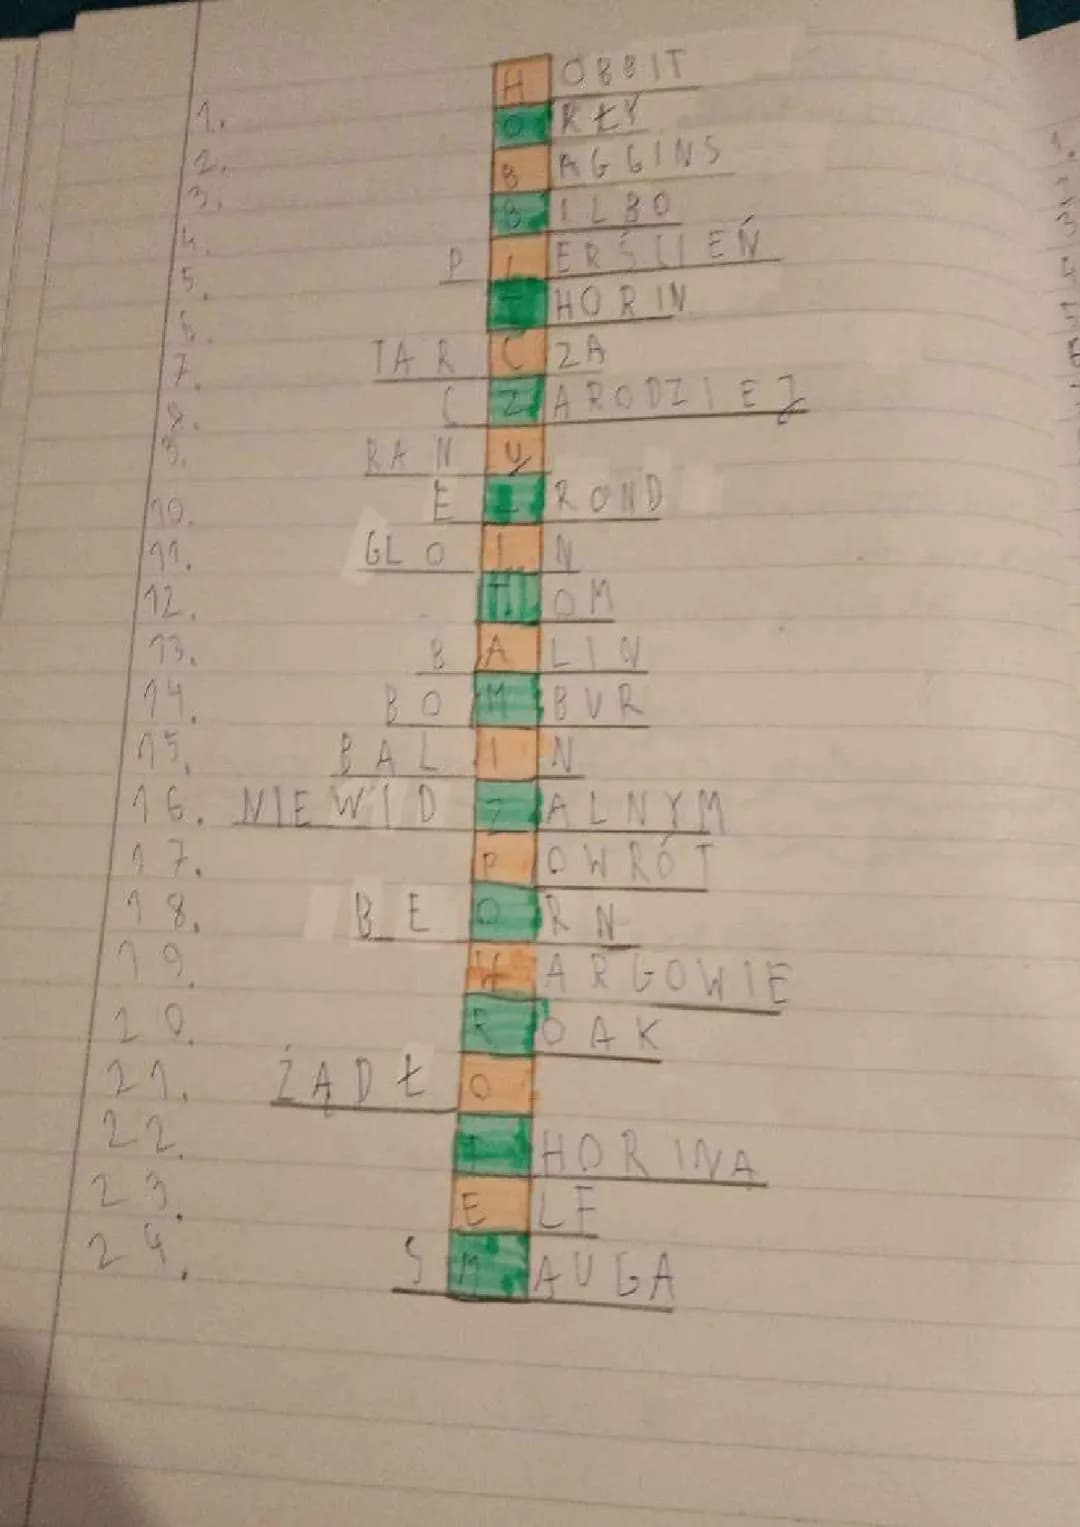 1. HOBBIT
2. ORŁY
3. BAGGINS
4. BILBO
5. PIERŚCIEŃ
6. THORIN
7. TARCZA
8. CZARODZIEJ
9. RANY
10. ELROND
11. GLOIN
12. DOM
13. BALIN
14. BOMBUR
15. BALIN
16. NIEWIDZALNYM
17. POWRÓT
18. BEORN
19. WARGOWIE
20. ROAK
21. ŻĄDŁO
22. THORINA
23. ELF
24. SMAUGA